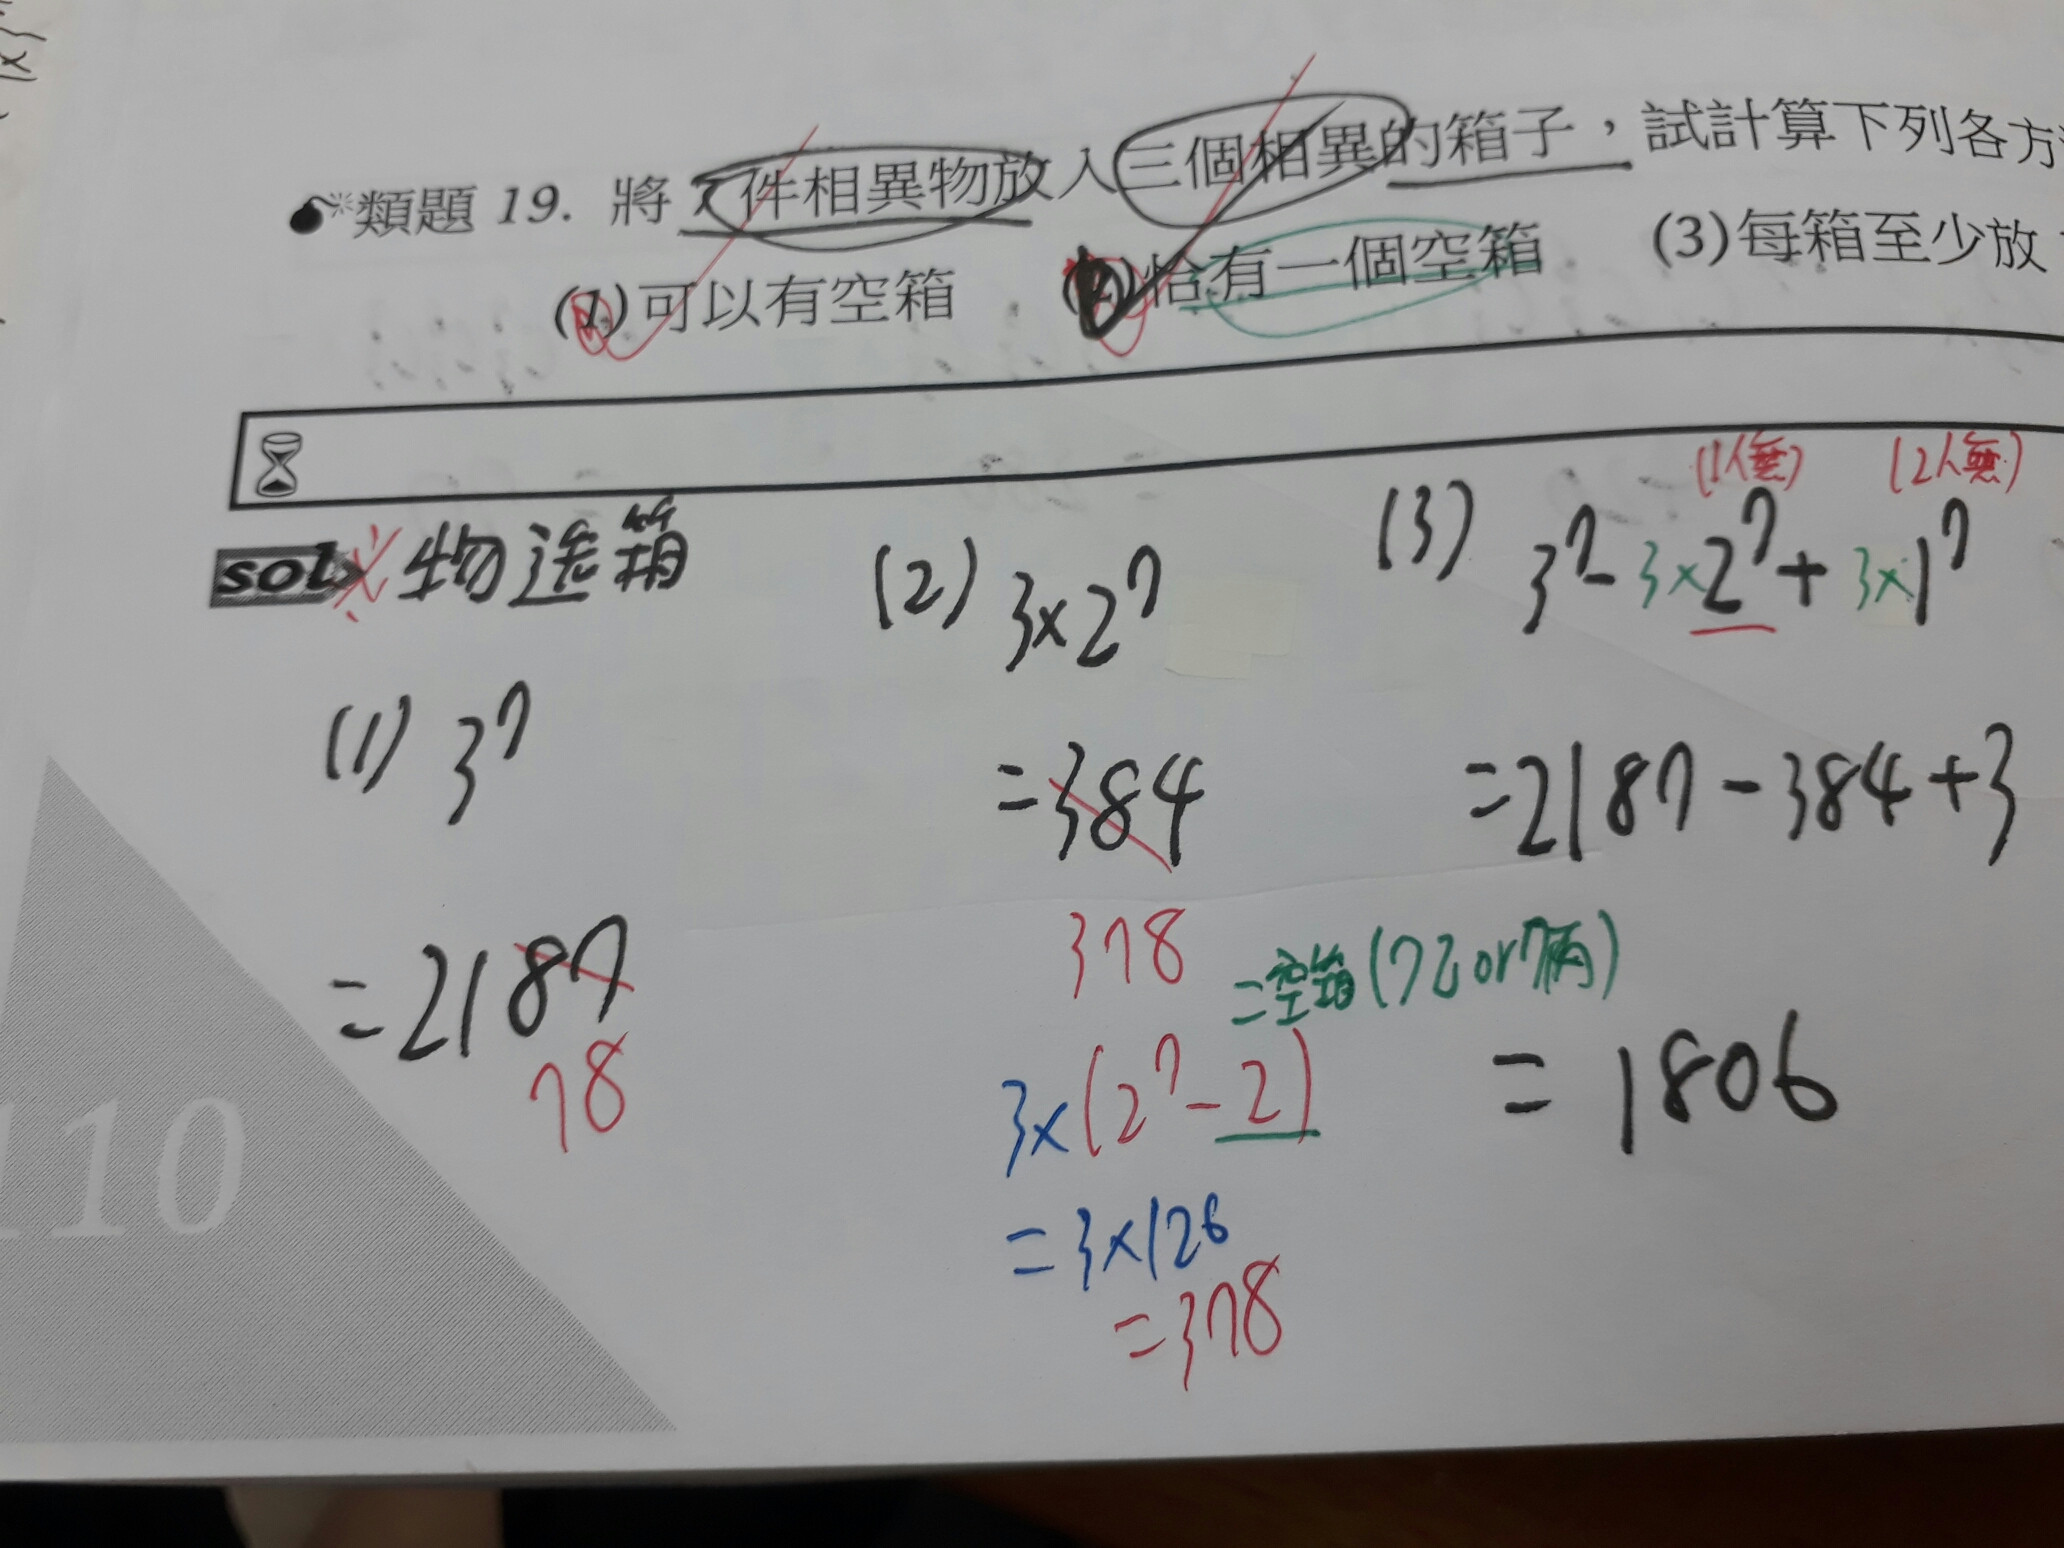 類題 19. 將 7 件相異物放入三個相異的箱子，試計算下列各方
(1)可以有空箱 (2)恰有一個空箱 (3)每箱至少放
sol ※ 物选箱
(1) 3⁷
= 2187
78
(2) 3×2⁷
= 384
378
= 空箱(7乙or7丙)
3×(2⁷-2)
= 3×126
= 378
(1人無) (2人無)
(3) 3⁷-3×2⁷+3×1⁷
= 2187-384+3
= 1806
110